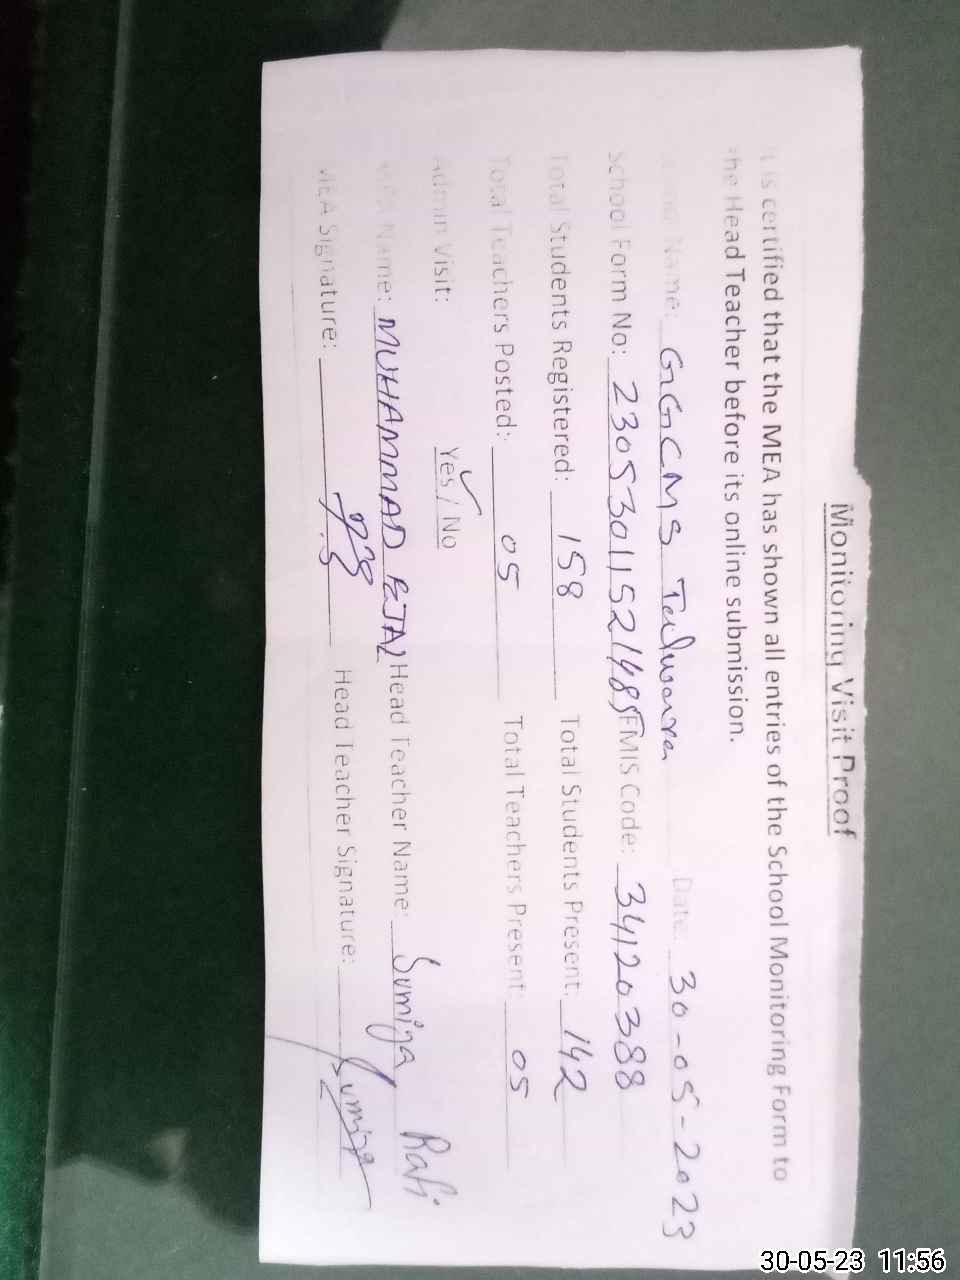 Monitoring Visit Proof
It is certified that the MEA has shown all entries of the School Monitoring Form to
the Head Teacher before its online submission.
School Name: GGCMS Date: 30-05-2023
School Form No: 2305301152148 EMIS Code: 34120388
Total Students Registered: 158 Total Students Present: 142
Total Teachers Posted: 05 Total Teachers Present: 05
Admin Visit: Yes / No
MEA Name: MUHAMMAD Head Teacher Name: Sumiya Rafi
MEA Signature: Head Teacher Signature: Sumiya
30-05-23 11:56